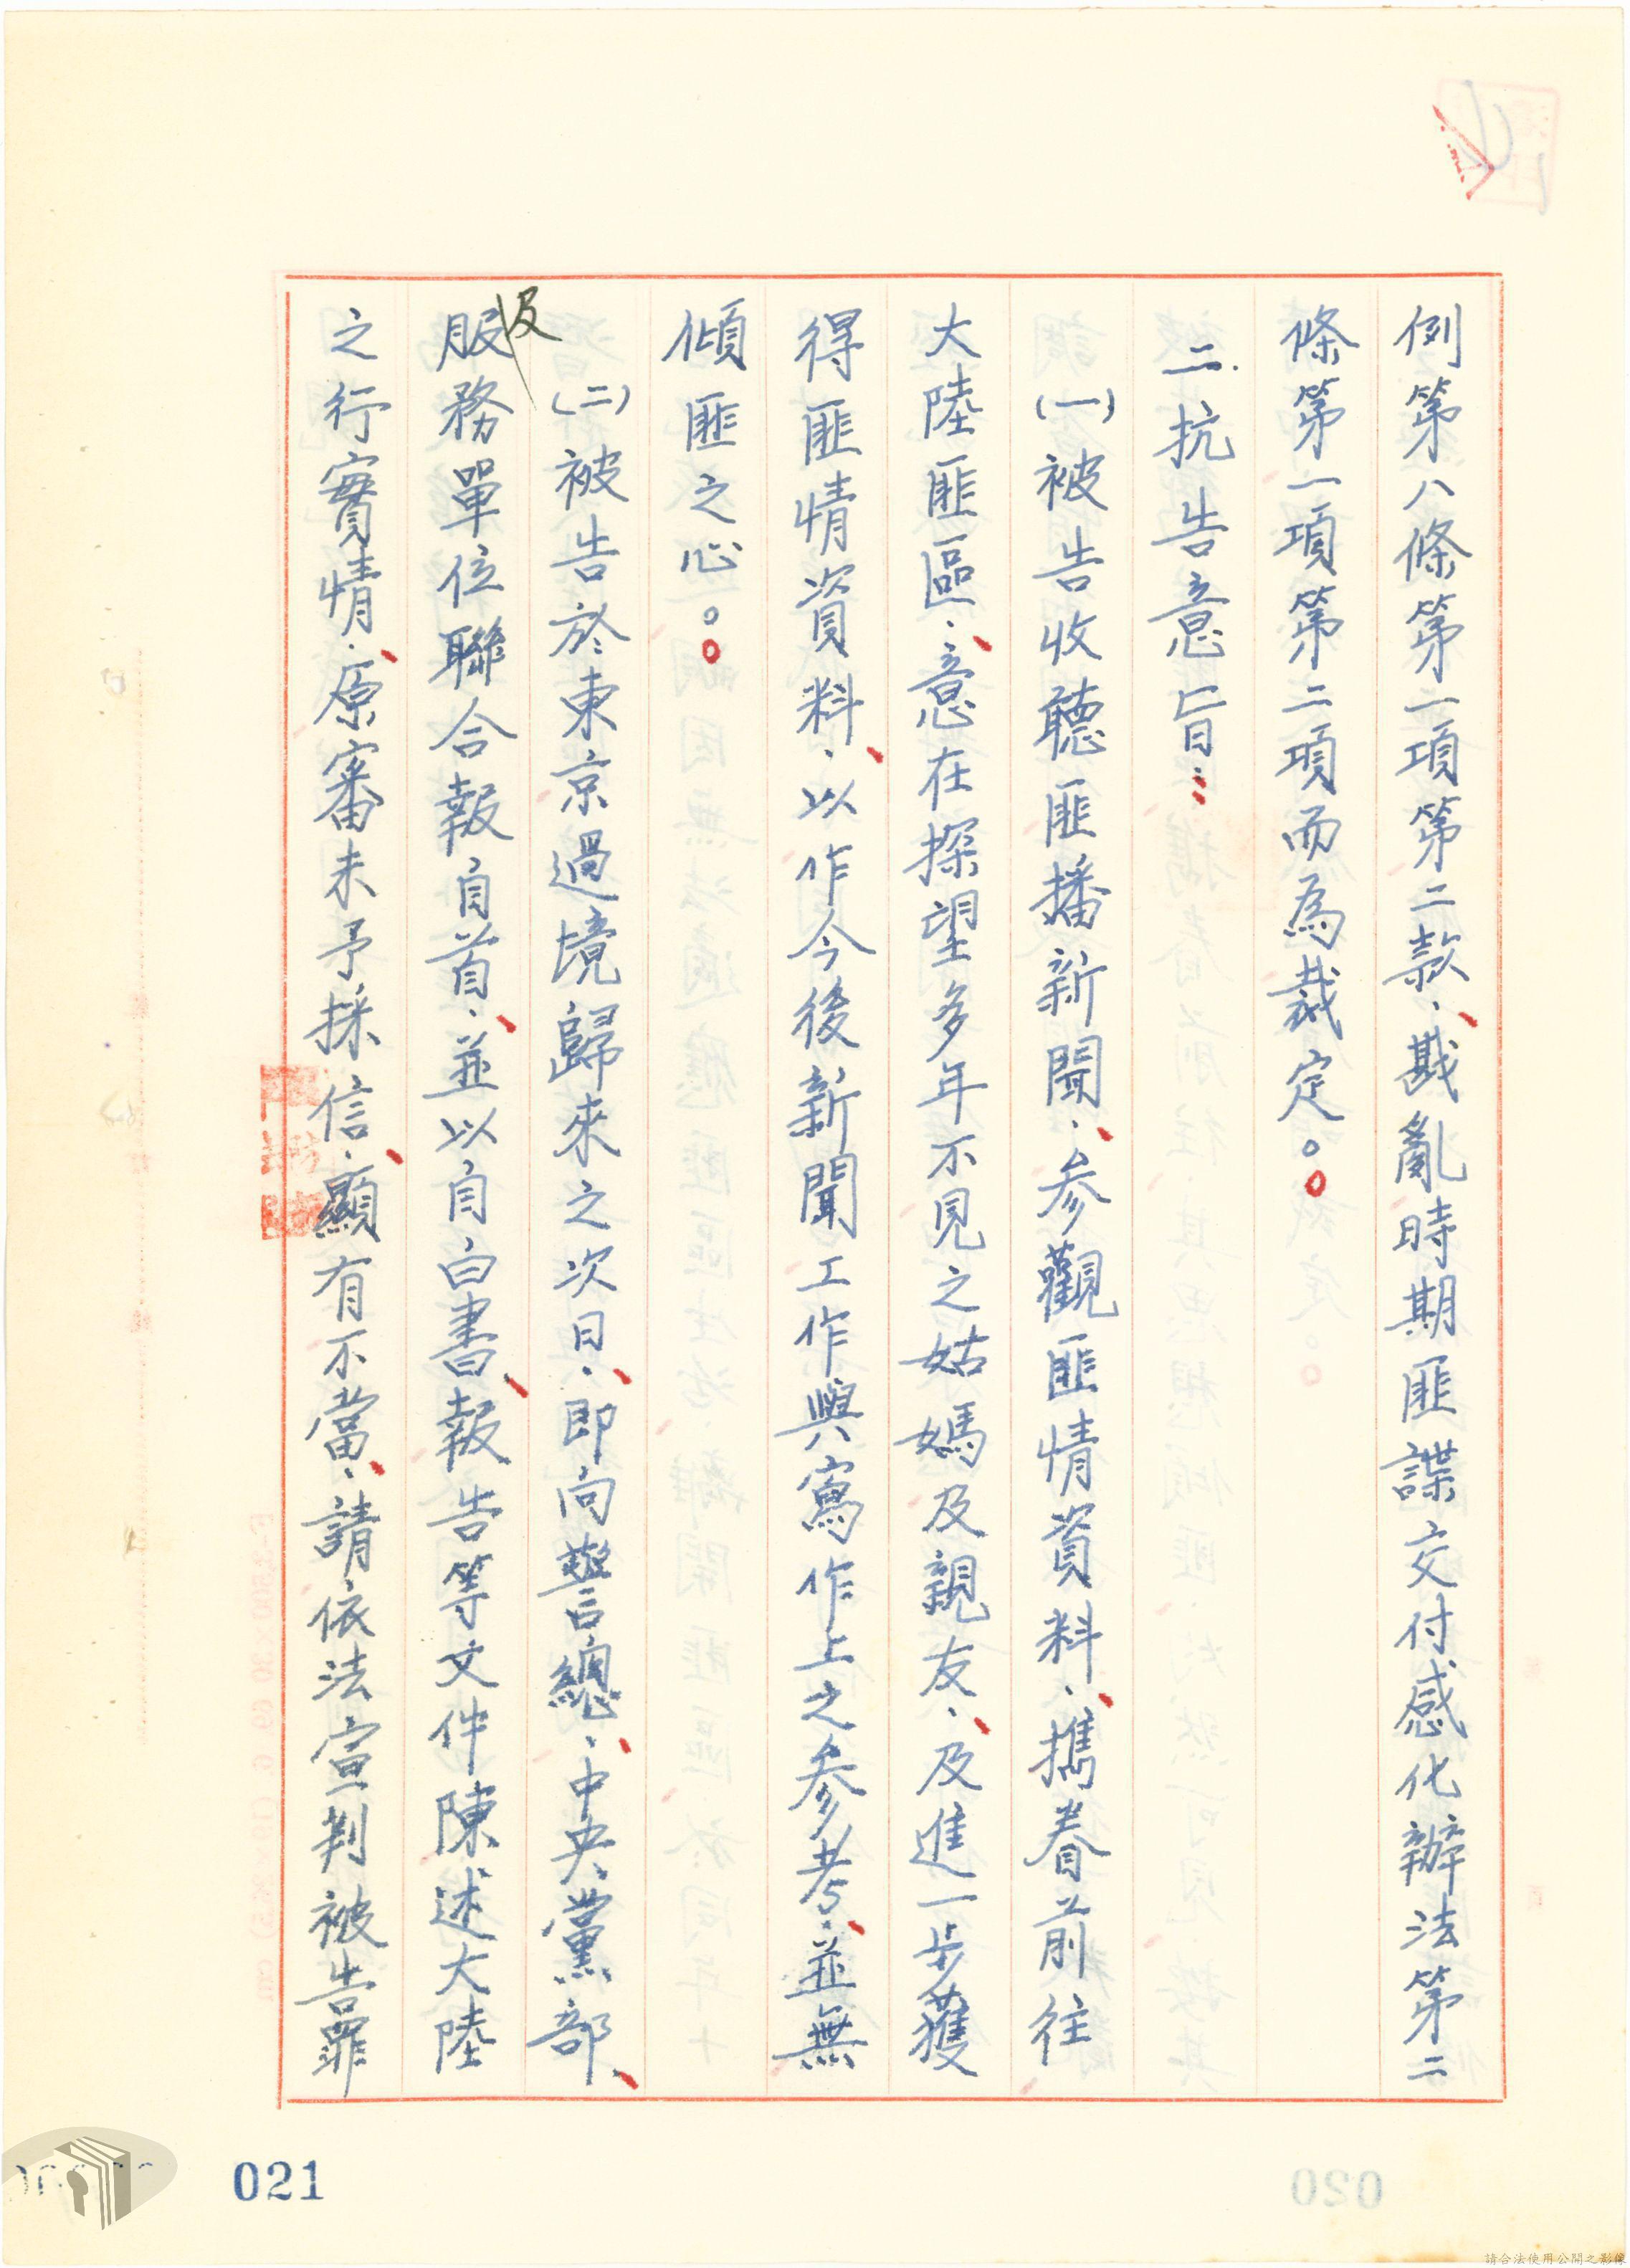 例第八條第一項第二款、戡亂時期匪諜交付感化辦法第二
條第一項第二項而為裁定。
二、抗告意旨：
(一)被告收聽匪播新聞、參觀匪情資料、携眷前往
大陸匪區、意在探望多年不見之姑媽及親友、及進一步獲
得匪情資料、以作今後新聞工作與寫作上之參考、並無
傾匪之心。
(二)被告於東京過境歸來之次日、即向警總、中央黨部、
及
服務單位聯合報自首、並以自白書、報告等文件陳述大陸
之行實情、原審未予採信、顯有不當、請依法宣判被告罪
021
020
請合法使用公開之影像